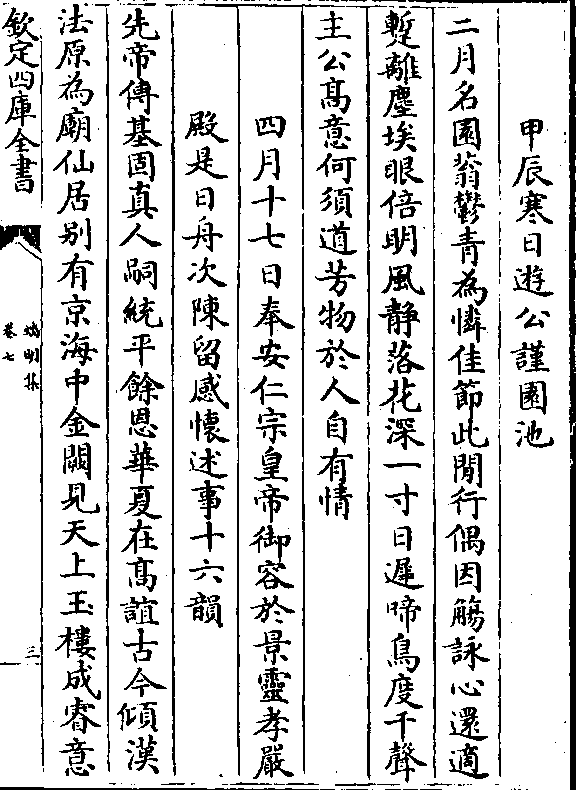 甲辰寒日遊公謹園池
二月名園蓊鬱青為憐佳節此閒行偶因觴詠心還適
蹔離塵埃眼倍明風静落花深一寸日遲啼鳥度千聲
主公髙意何須道芳物於人自有情
四月十七日奉安仁宗皇帝御容於景靈孝嚴
殿是日舟次陳留感懐述事十六韻
先帝傳基固真人嗣統平餘恩華夏在髙誼古今傾漢
法原為廟仙居别有京海中金闕見天上玉樓成睿意
欽定四庫全書
端明集
卷七
三